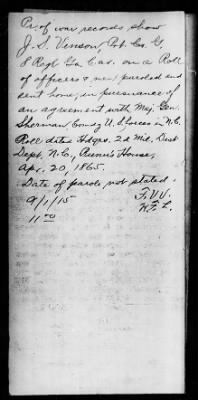 Pr. of war records show
J. S. Vinson, Pvt. Co. G,
8 Regt. Ga. Cav. on a Roll
of officers & men paroled and
sent home, in persuance of
an agreement with Maj. Gen.
Sherman Comd'g U.S. forces in N.C.
Roll dated Hdqrs. 2d Mil. Dist
Dept. N.C., House,
Apr. 20, 1865.
Date of parole not stated.
9/1/15
11 00